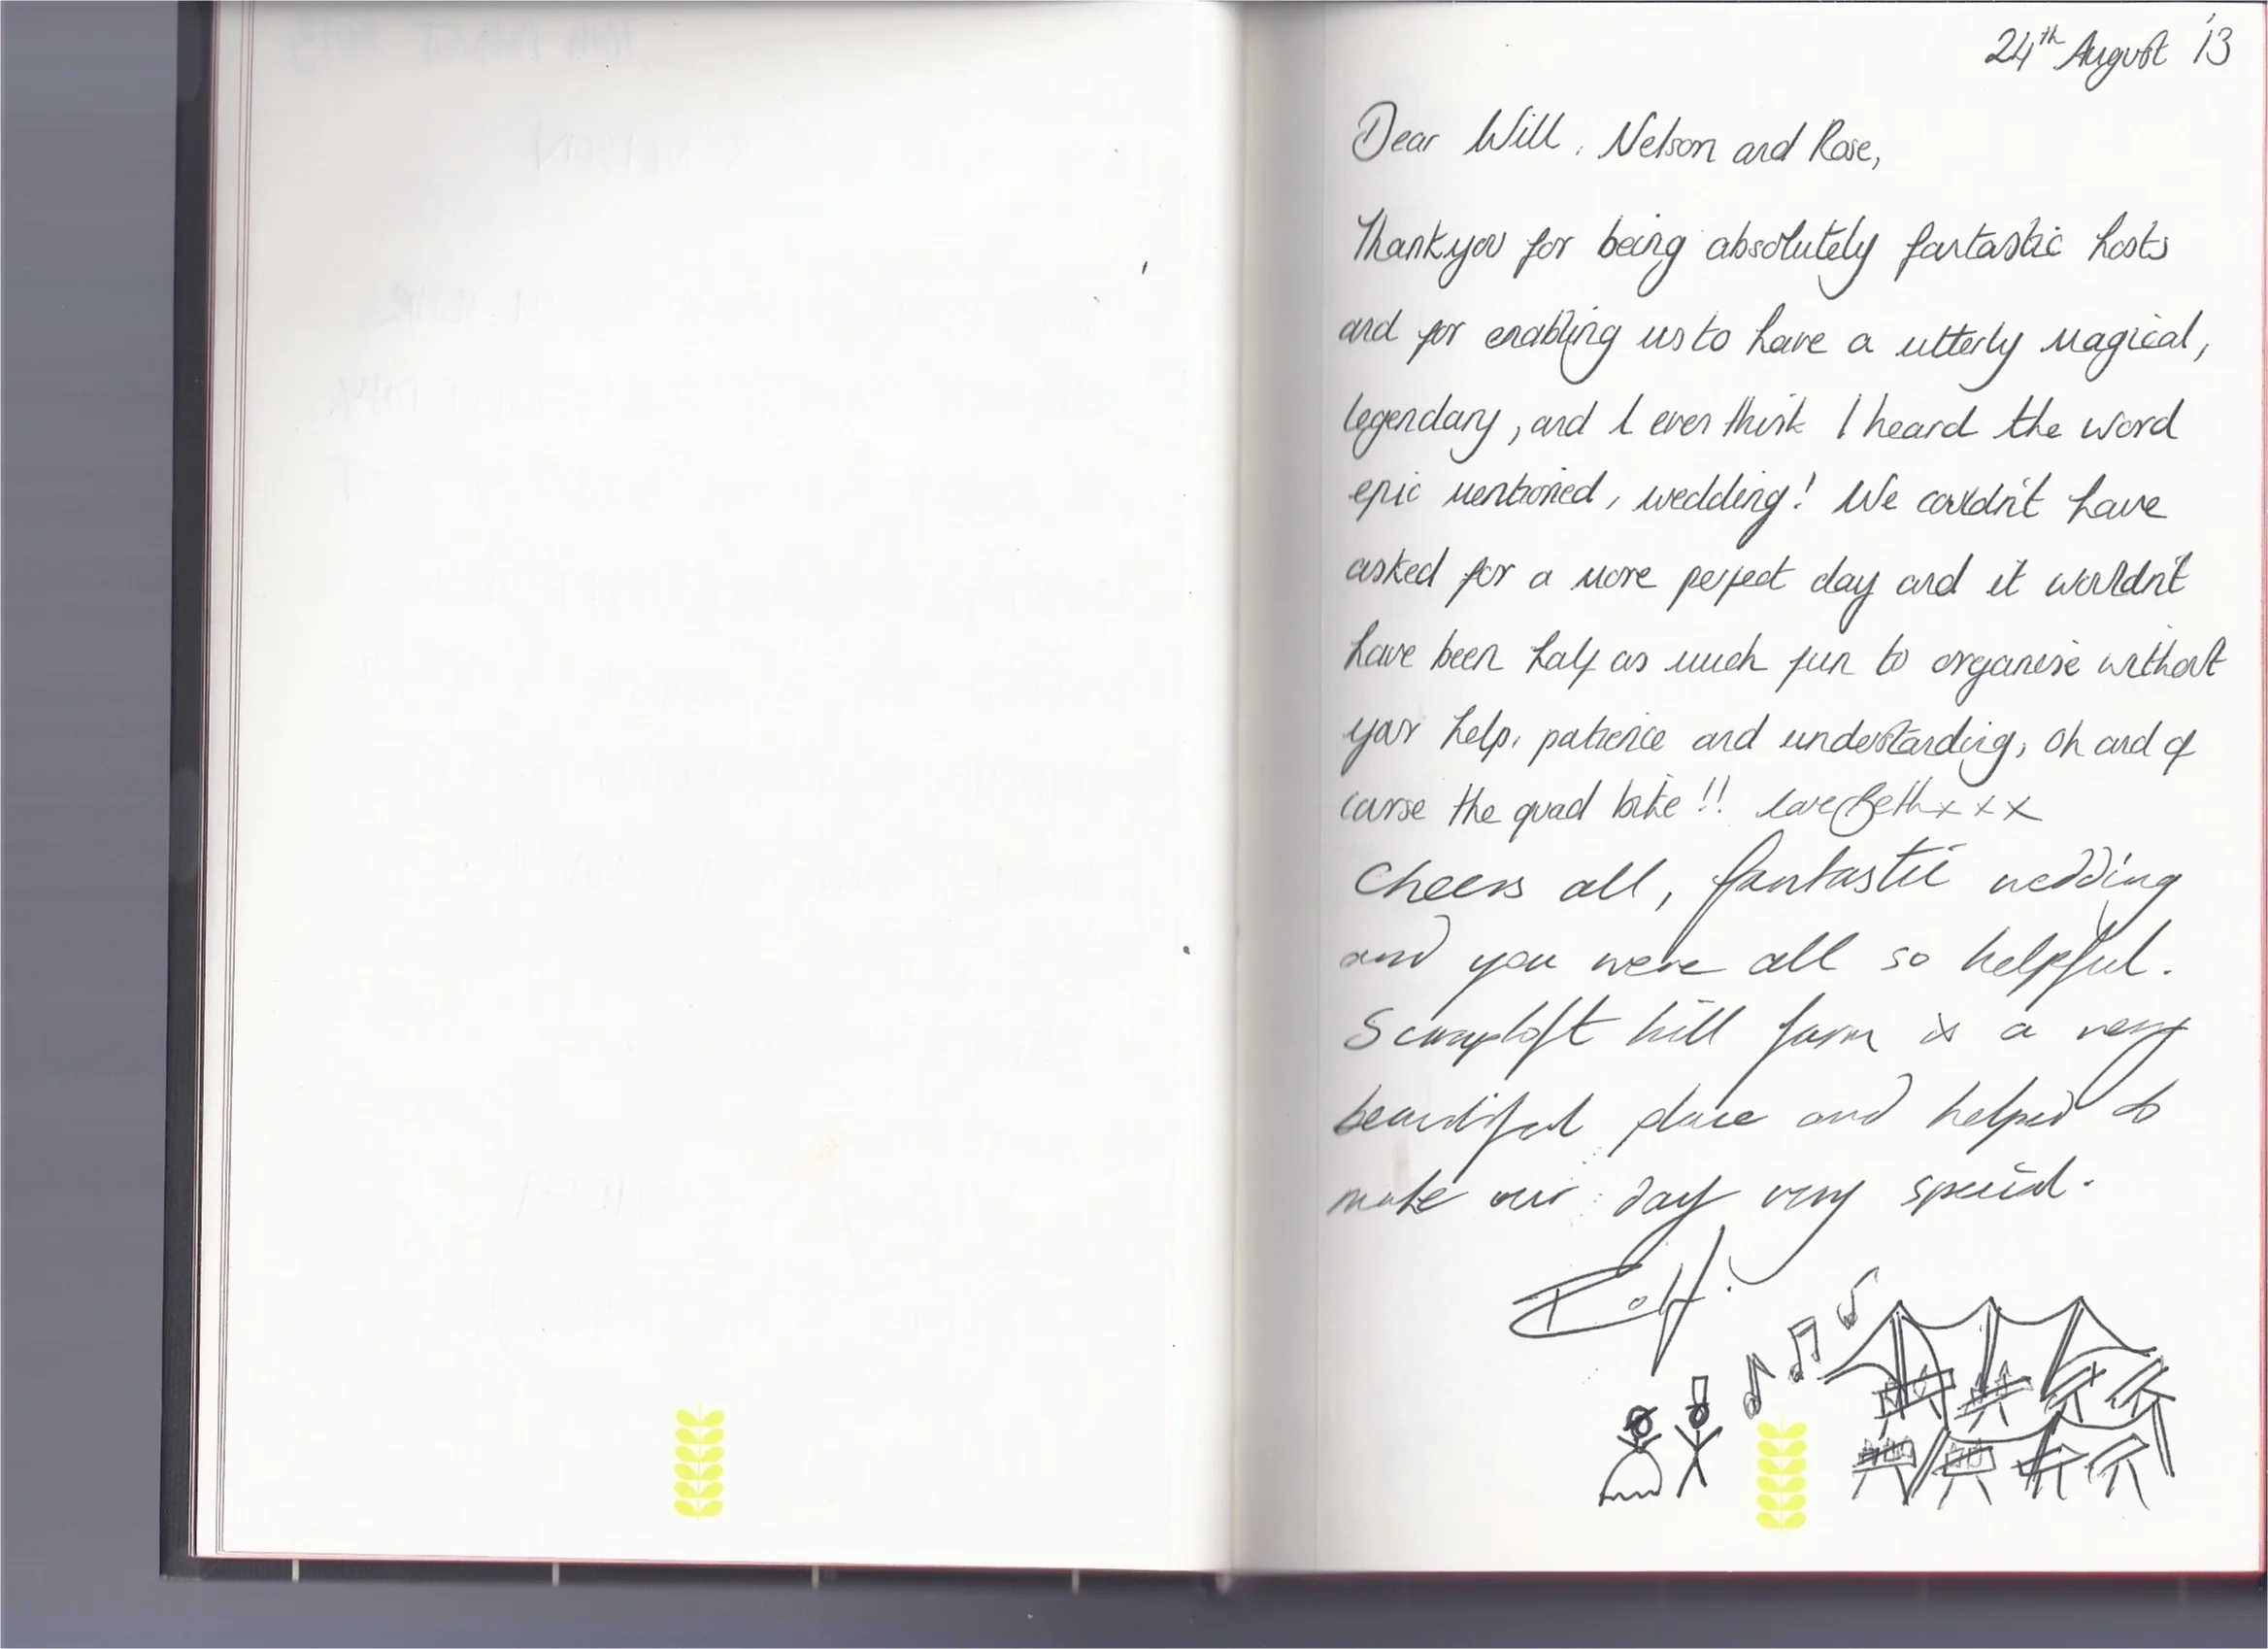 24th August '13
Dear Will, Nelson and Rose,
Thankyou for being absolutely fantastic hosts
and for enabling us to have a utterly magical,
legendary, and I even think I heard the word
epic mentioned, wedding! We couldn't have
asked for a more perfect day and it wouldn't
have been half as much fun to organise without
your help, patience and understanding, oh and of
course the quad bike!! Love Beth x x x
Cheers all, fantastic wedding
and you were all so helpful.
Scraptoft hill farm is a very
beautiful place and helped to
make our day very special.